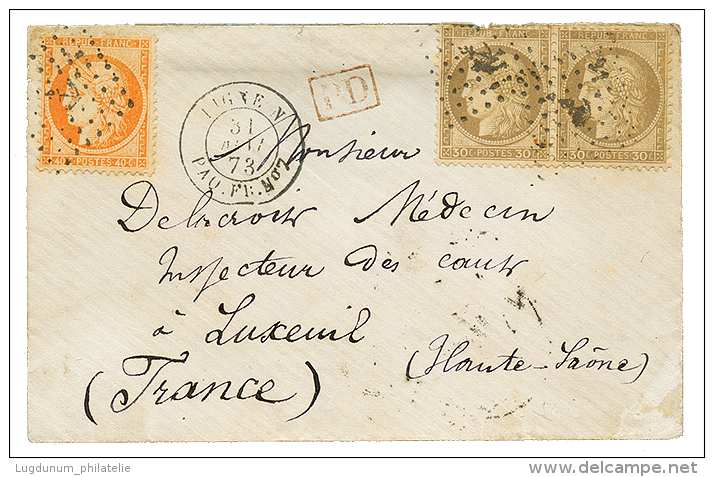 REPUB. FRANC.
40 C. POSTES 40 C.
REPUB. FRANC.
30 C. POSTES 30 C.
REPUB. FRANC.
30 C. POSTES 30 C.
LIGNE N
31
AOUT
73
PAQ. FR. No 7
PD
Monsieur
Delacroix Médecin
Inspecteur des eaux
à Luxeuil
(France) (Haute-Saône)
Lugdunum_philatelie
www.delcampe.net